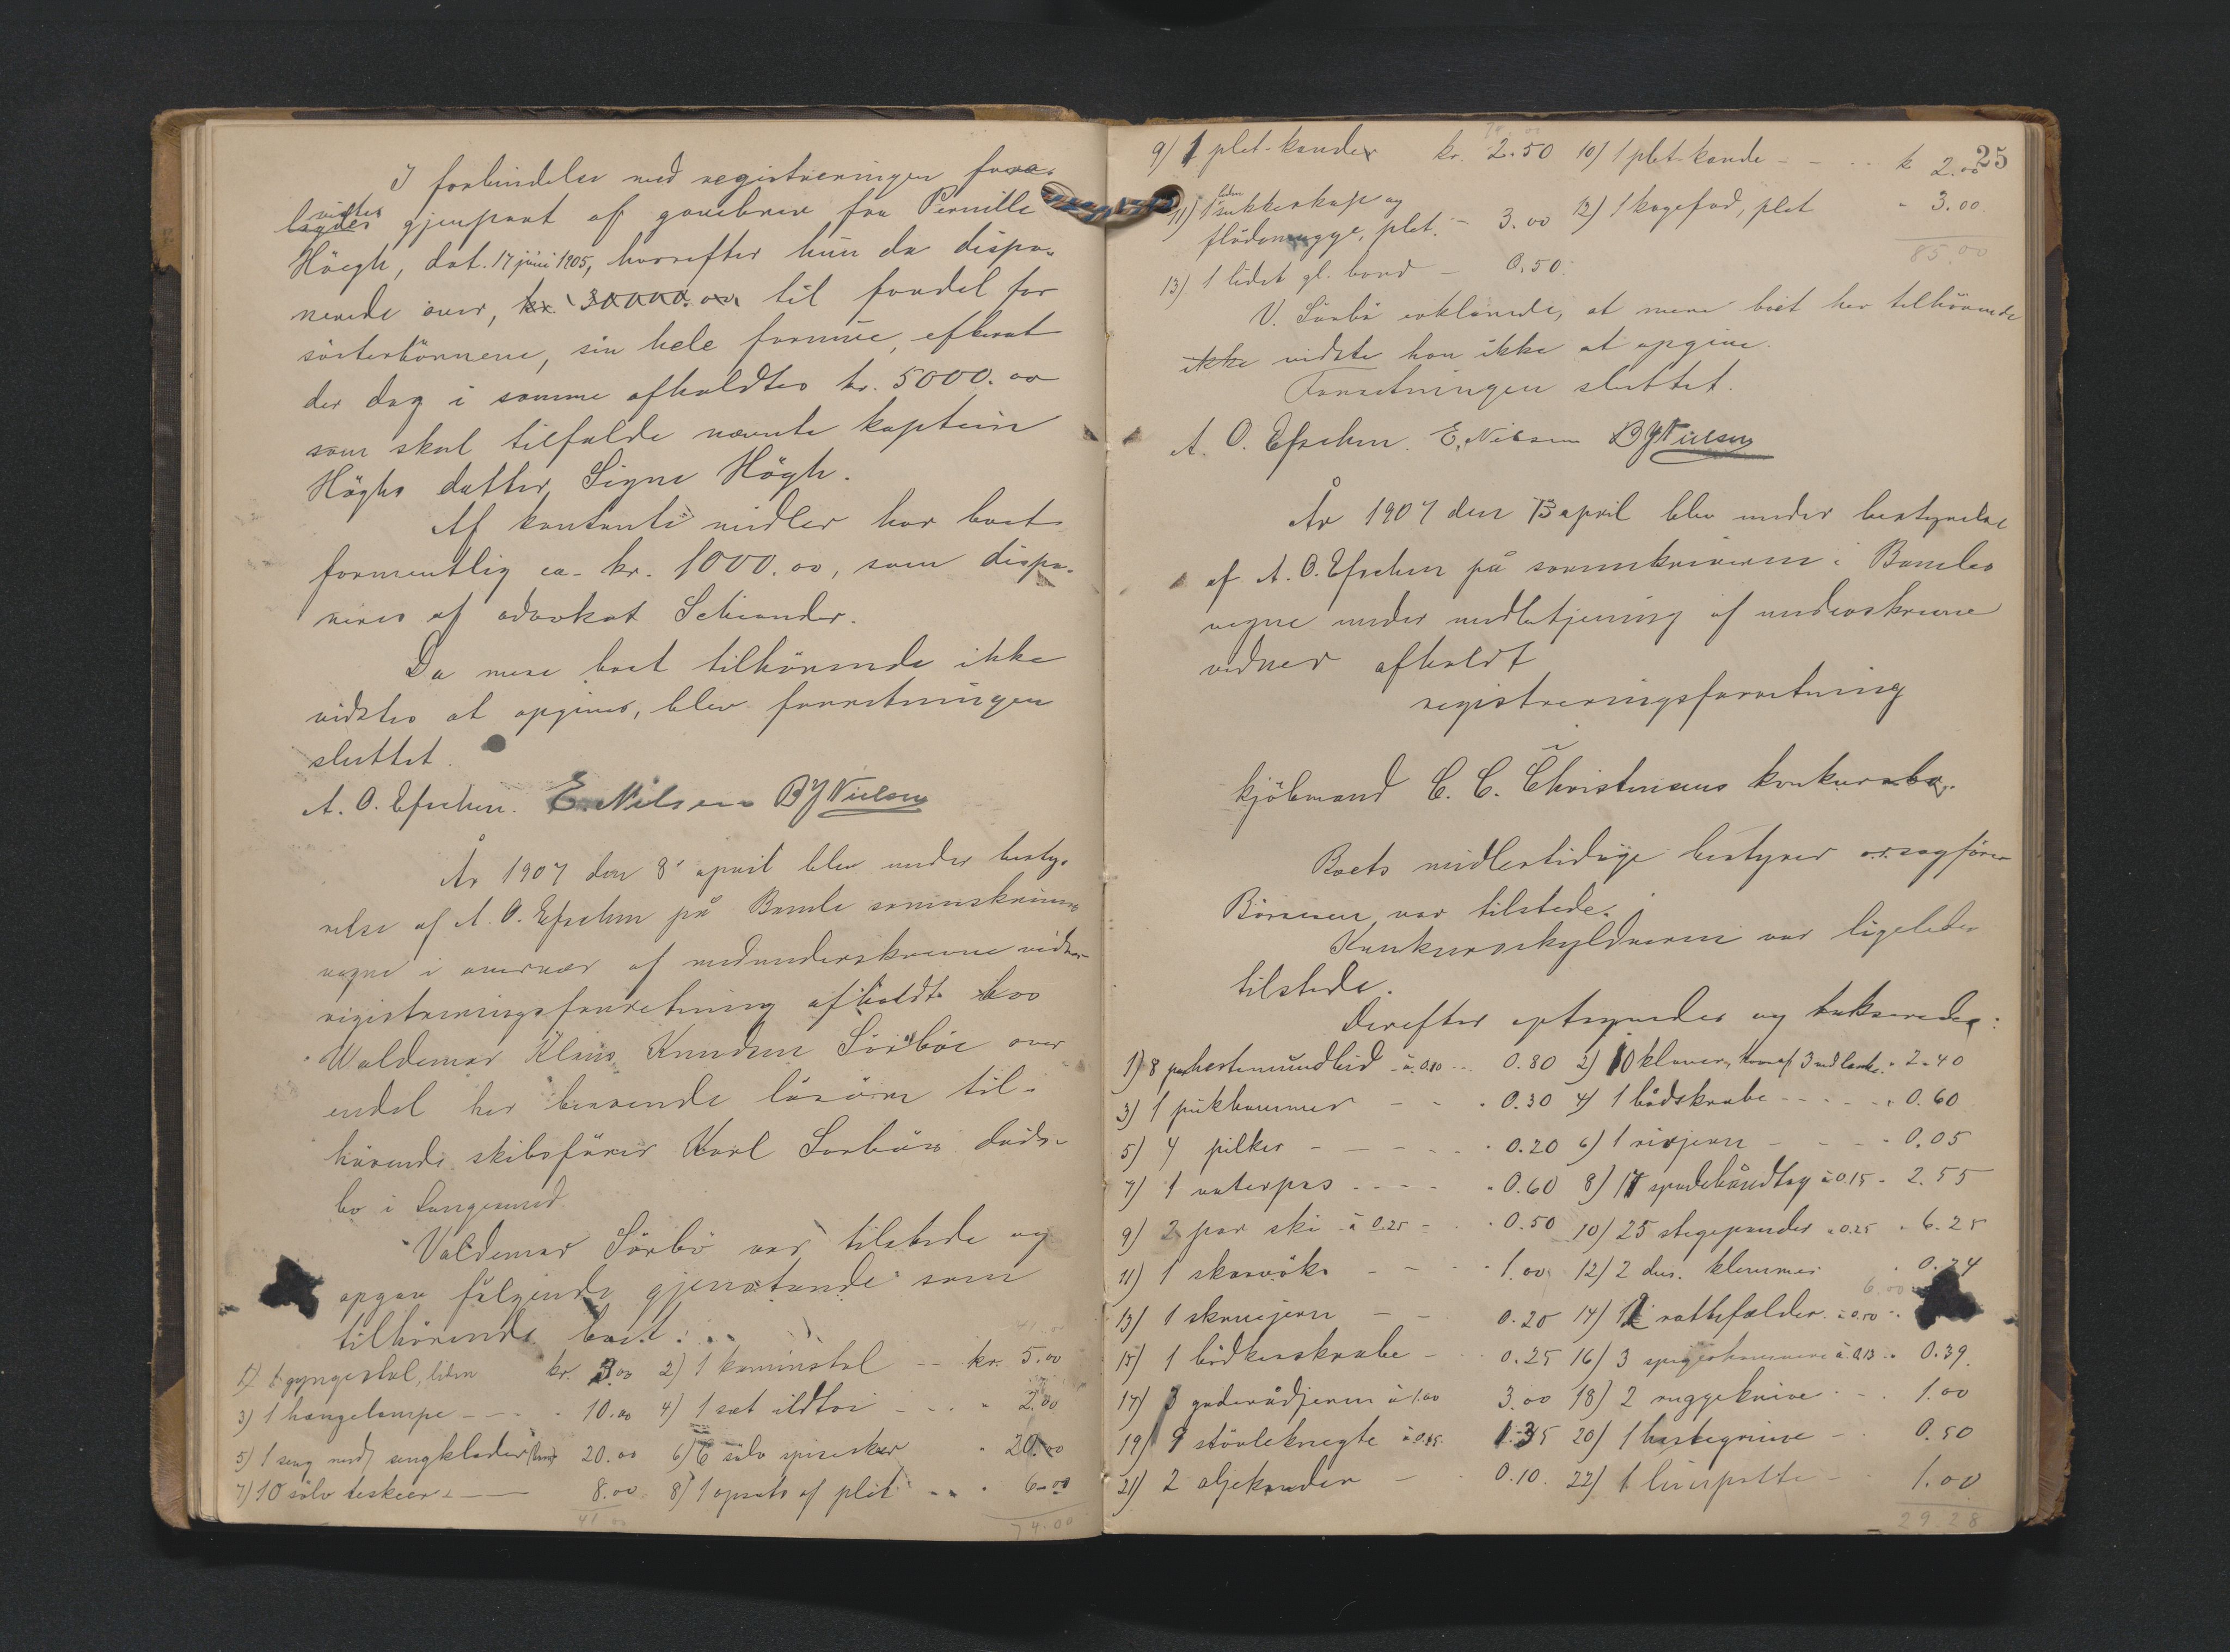 I forbindelse med registreringen frem-
lagdes vistes gjenpart af gavebrev fra Pernille
Höegh, dat. 17 juni 1905, hvorefter hun da dispo-
nerede over, kr. 30000.00 til fordel for
sösterbörnene, sin hele formue, efterat
der dog i samme afholdtes kr. 5000.00
som skal tilfalde nævnte kaptein
Höghs datter Signe Högh.
Af kontante midler har boet
formentlig ca. kr. 1000.00, som dispo-
neres af advokat Schiander.
Da mere boet tilhörende ikke
vidstes at opgives, blev forretningen
sluttet.
A. O. Efsehen. E. Nilsen BJ Nielsen
År 1907 den 8' april blev under besty-
relse af A. O. Efsehen på Bamle sorenskrivers
vegne i overvær af medunderskrevne vidner
registreringsforretning afholdt hos
Waldemar Klaus Knudsen Sörböe over
endel her beroende lösöre til-
hörende skibsförer Karl Sorböes döds-
bo i Langesund.
Valdemar Sörbö var tilstede og
opgav fölgende gjenstande som
tilhörende boet:
1) 1 gyngestol, liden kr. 3.00 2) 1 kaminstol -- kr. 5.00
3) 1 hængelampe - - - 10.00 4) 1 sæt ildtöi - - - 2.00
5) 1 seng med sengklæder 20.00 6) 6 sölv spiseskeer - 20.00
7) 10 sölv teskeer - 8.00 8) 1 opsats af plet - - 6.00
41.00 74.00
25
9) 1 plet-kande kr. 2.50 10) 1 plet-kande - - - k 2.00
11) 1 liden sukkerkop og
flödemugge, plet. - 3.00 12) 1 kagefad, plet - 3.00
85.00
13) 1 lidet gl. bord - 0.50.
V. Sörbö erklærede, at mere boet her tilhörende
ikke vidste han ikke at opgive.
Forretningen sluttet.
A. O. Efsehen. E. Nilsen BJ Nielsen
År 1907 den 13 april blev under bestyrelse
af A. O. Efsehen på sorenskriveren i Bamles
vegne under medbetjening af underskrevne
vidner afholdt
registreringsforretning
i
kjöbmand C. C. Christensens konkursbo.
Boets midlertidige bestyrer o.r.sagförer
Börresen var tilstede.
Konkursskyldneren var ligeledes
tilstede.
Derefter optegnedes og taksteredes:
1) 8 par hestemundbid - à 0.10 - - 0.80 2) 10 klaver, hvoraf 3 - 2.40
3) 1 pukhammer - - - 0.30 4) 1 bådskrabe - - - - 0.60
5) 4 pilker - - - - 0.20 6) 1 rivjern - - - - 0.05
7) 1 vaterpas - - - - 0.60 8) 17 spadehåndtag à 0.15 - 2.55
9) 2 par ski - à 0.25 - - 0.50 10) 25 stegepander à 0.25 - 6.25
11) 1 skovöks - - - 1.00 12) 2 dus. klemmer - 0.24
13) 1 skruejern - - 0.20 14) 12 rottefælder à 0.50 - 6.00
15) 1 bödkerskrabe - - 0.25 16) 3 spigerhammere à 0.13 - 0.39
17) 3 à 1.00 3.00 18) 2 ryggeknive - - 1.00
19) 9 stövleknegte à 0.15 1.35 20) 1 hestegrime - 0.50
21) 2 oljekander - 0.10. 22) 1 limpotte - 1.00
29.28